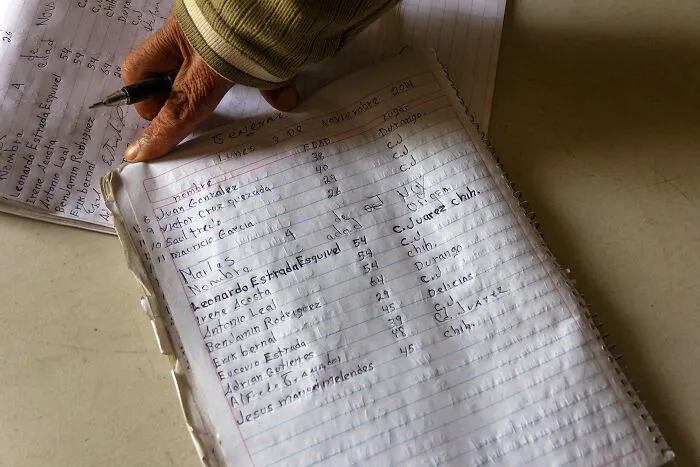 General
Lunes 3 De Noviembre 2014
nombre EDAD Lugar
8 Juan Gonzalez 38 Durango
9 Victor Cruz quezada 40 C.J
10 Saul tredo 29 C.J
11 mauricio Garcia 28 C.J
Martes 4 de Nov
Nombra edad Origen
Leonardo Estrada Esquivel 54 C. Juarez chih.
Irene Acosta 59 C.J
Antonio Leal 54 chih.
Benjamin Rodriguez 64 Durango
Erik bernal 29 C.J
Eucevio Estrada 45 Delicias
Adrian Gutierres 39 C.J
Alfredo 48 Cd. Juarez
Jesus manuel melendes 45 chih.
26 C.J
A de Nov
Nombra edad
Leonardo Estrada Esquivel 54
Irene Acosta 59
Antonio Leal 54
Benjamin Rodriguez 64
Erik bernal